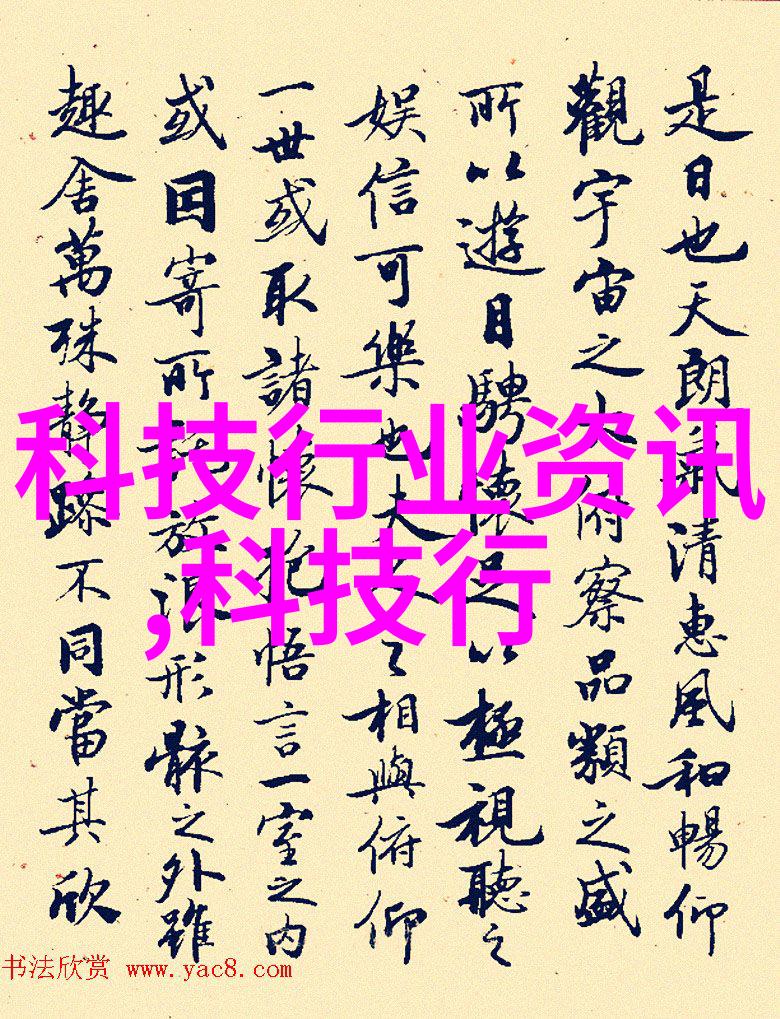 是日也天朗氣清惠風和暢仰
觀宇宙之大俯察品類之盛
所以遊目騁懷足以極視聽之
娛信可樂也夫人之相與俯仰
一世或取諸懷抱悟言一室之内
或因寄所託放浪形骸之外雖
趣舍萬殊靜躁不同當其欣
科技行业资讯
,科技行
书法欣赏 www.yac8.com